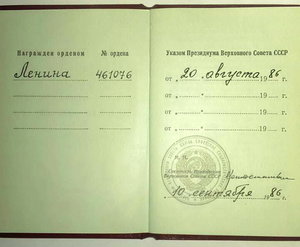 Награжден орденом № ордена
Ленина 461076
Указом Президиума Верховного Совета СССР
от „20" августа 1986 г.
от „ " 19 г.
от „ " 19 г.
от „ " 19 г.
Секретарь Президиума
Верховного Совета СССР
„10" сентября 1986 г.